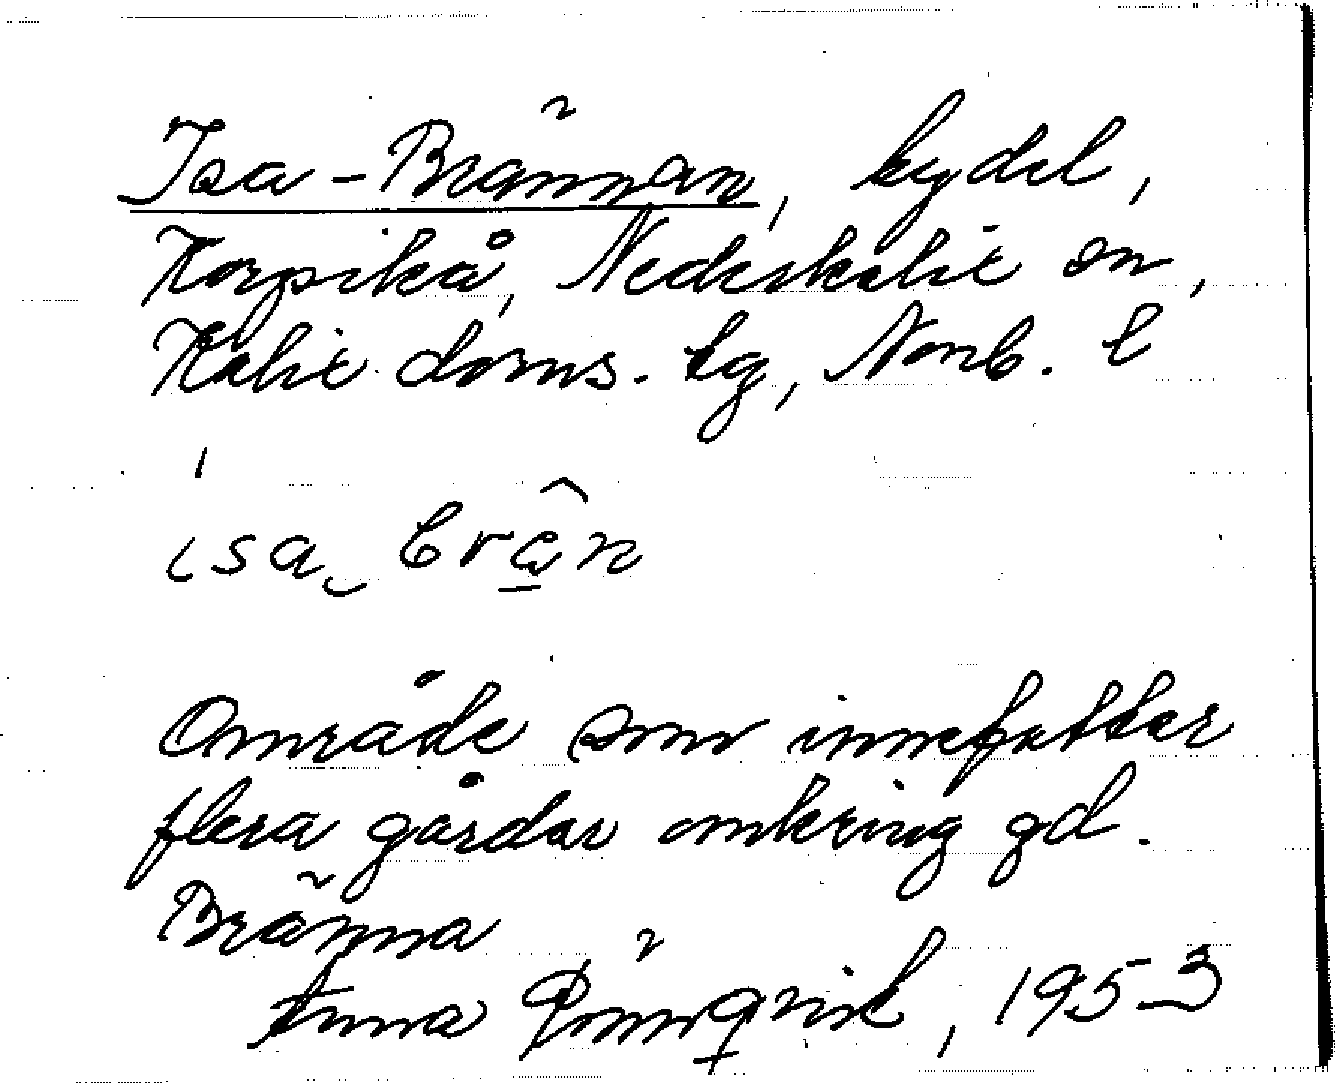 Isa-Brännan, bydel,
Korpikå, Nederkalix sn,
Kalix doms. tg, Norrb. l
ısa‿ brân
Område som innefattar
flera gårdar omkring gd.
Bränna
Anna Rönnqvist, 1953